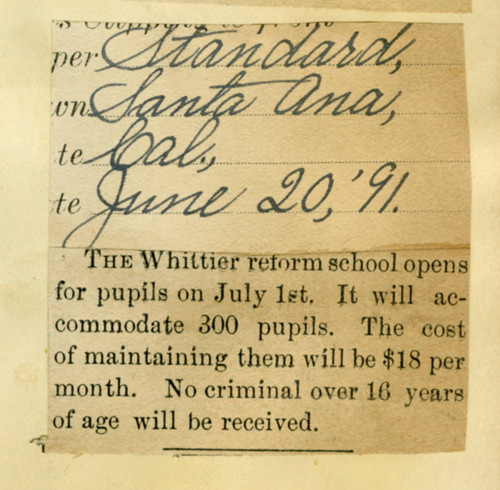 per Standard,
wn Santa Ana,
te Cal.,
te June 20, '91.
THE Whittier reform school opens
for pupils on July 1st. It will ac-
commodate 300 pupils. The cost
of maintaining them will be $18 per
month. No criminal over 16 years
of age will be received.